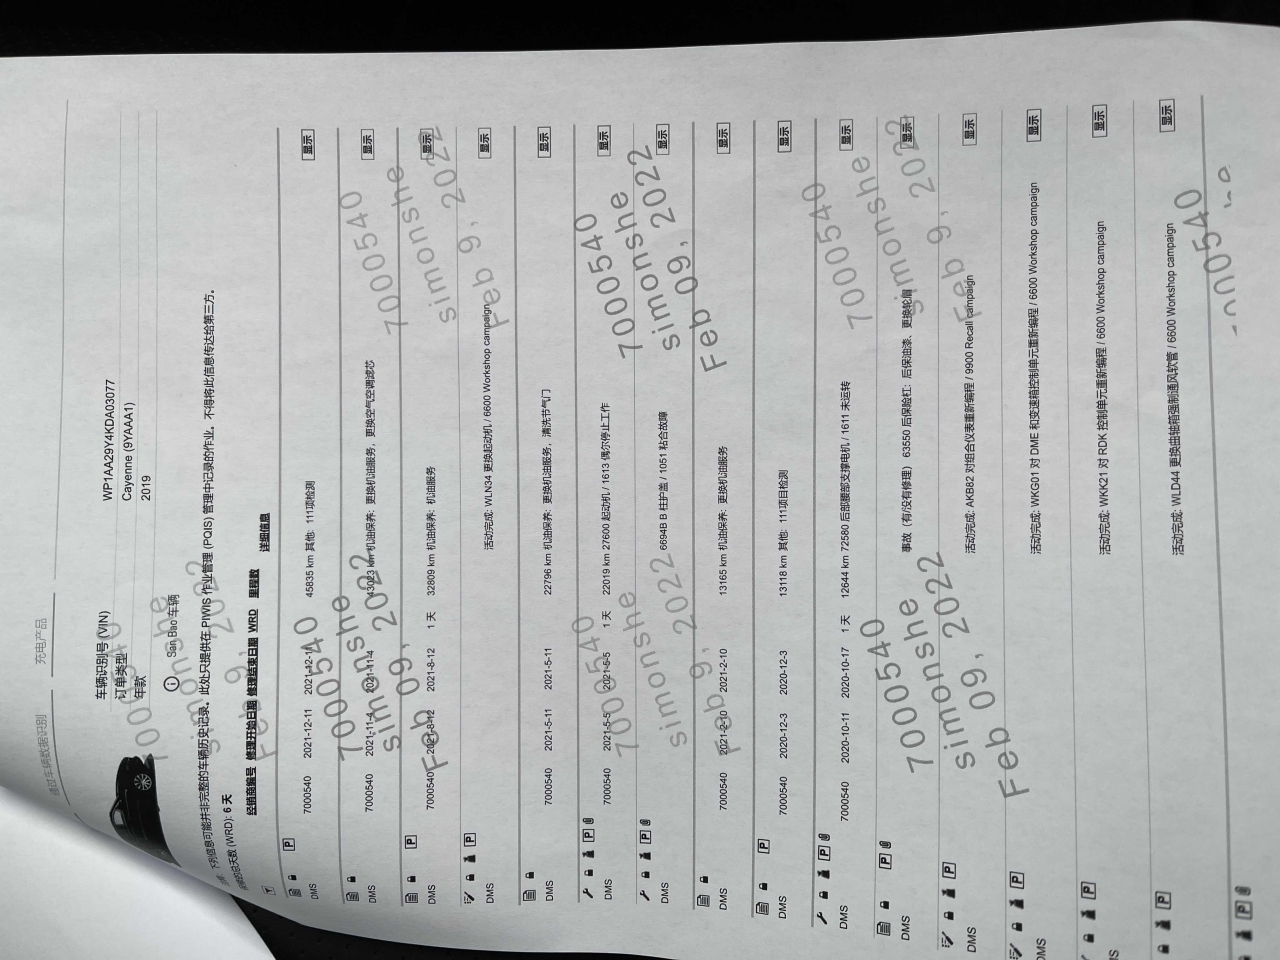 通过车辆数据识别
充电产品
车辆识别号 (VIN) WP1AA29Y4KDA03077
订单类型 Cayenne (9YAAA1)
年款 2019
San Bao 车辆
下列信息可能并非完整的车辆历史记录。此处只提供在 PIWIS 作业管理 (PQIS) 管理中记录的作业。不得将此信息传达给第三方。
总天数 (WRD): 6 天
经销商编号 修理开始日期 修理结束日期 WRD 里程数 详细信息
P
DMS 7000540 2021-12-11 2021-12-11 45835 km 其他: 111项检测 显示
DMS 7000540 2021-11-4 2021-11-4 43023 km 机油保养: 更换机油服务, 更换空气空调滤芯 显示
P
DMS 7000540 2021-8-12 2021-8-12 1 天 32809 km 机油保养: 机油服务 显示
P
DMS 活动完成: WLN34 更换起动机 / 6600 Workshop campaign 显示
DMS 7000540 2021-5-11 2021-5-11 22796 km 机油保养: 更换机油服务, 清洗节气门 显示
P
DMS 7000540 2021-5-5 2021-5-5 1 天 22019 km 27600 起动机 / 1613 偶尔停止工作 显示
P
DMS 6694B B 柱护盖 / 1051 粘合故障 显示
DMS 7000540 2021-2-10 2021-2-10 13165 km 机油保养: 更换机油服务 显示
P
DMS 7000540 2020-12-3 2020-12-3 13118 km 其他: 111项目检测 显示
P
DMS 7000540 2020-10-11 2020-10-17 1 天 12644 km 72580 后部腰部支撑电机 / 1611 未运转 显示
P
DMS 事故 (有/没有修理) 63550 后保险杠: 后保油漆、更换轮眉 显示
P
DMS 活动完成: AKB82 对组合仪表重新编程 / 9900 Recall campaign 显示
P
DMS 活动完成: WKG01 对 DME 和变速箱控制单元重新编程 / 6600 Workshop campaign 显示
P
活动完成: WKK21 对 RDK 控制单元重新编程 / 6600 Workshop campaign 显示
P
活动完成: WLD44 更换曲轴箱强制通风软管 / 6600 Workshop campaign 显示
P
7000540
simonshe
Feb 9, 2022
7000540
simonshe
Feb 09, 2022
7000540
simonshe
Feb 9, 2022
7000540
simonshe
Feb 9, 2022
7000540
simonshe
Feb 09, 2022
7000540
simonshe
Feb 09, 2022
7000540
simonshe
Feb 9, 2022